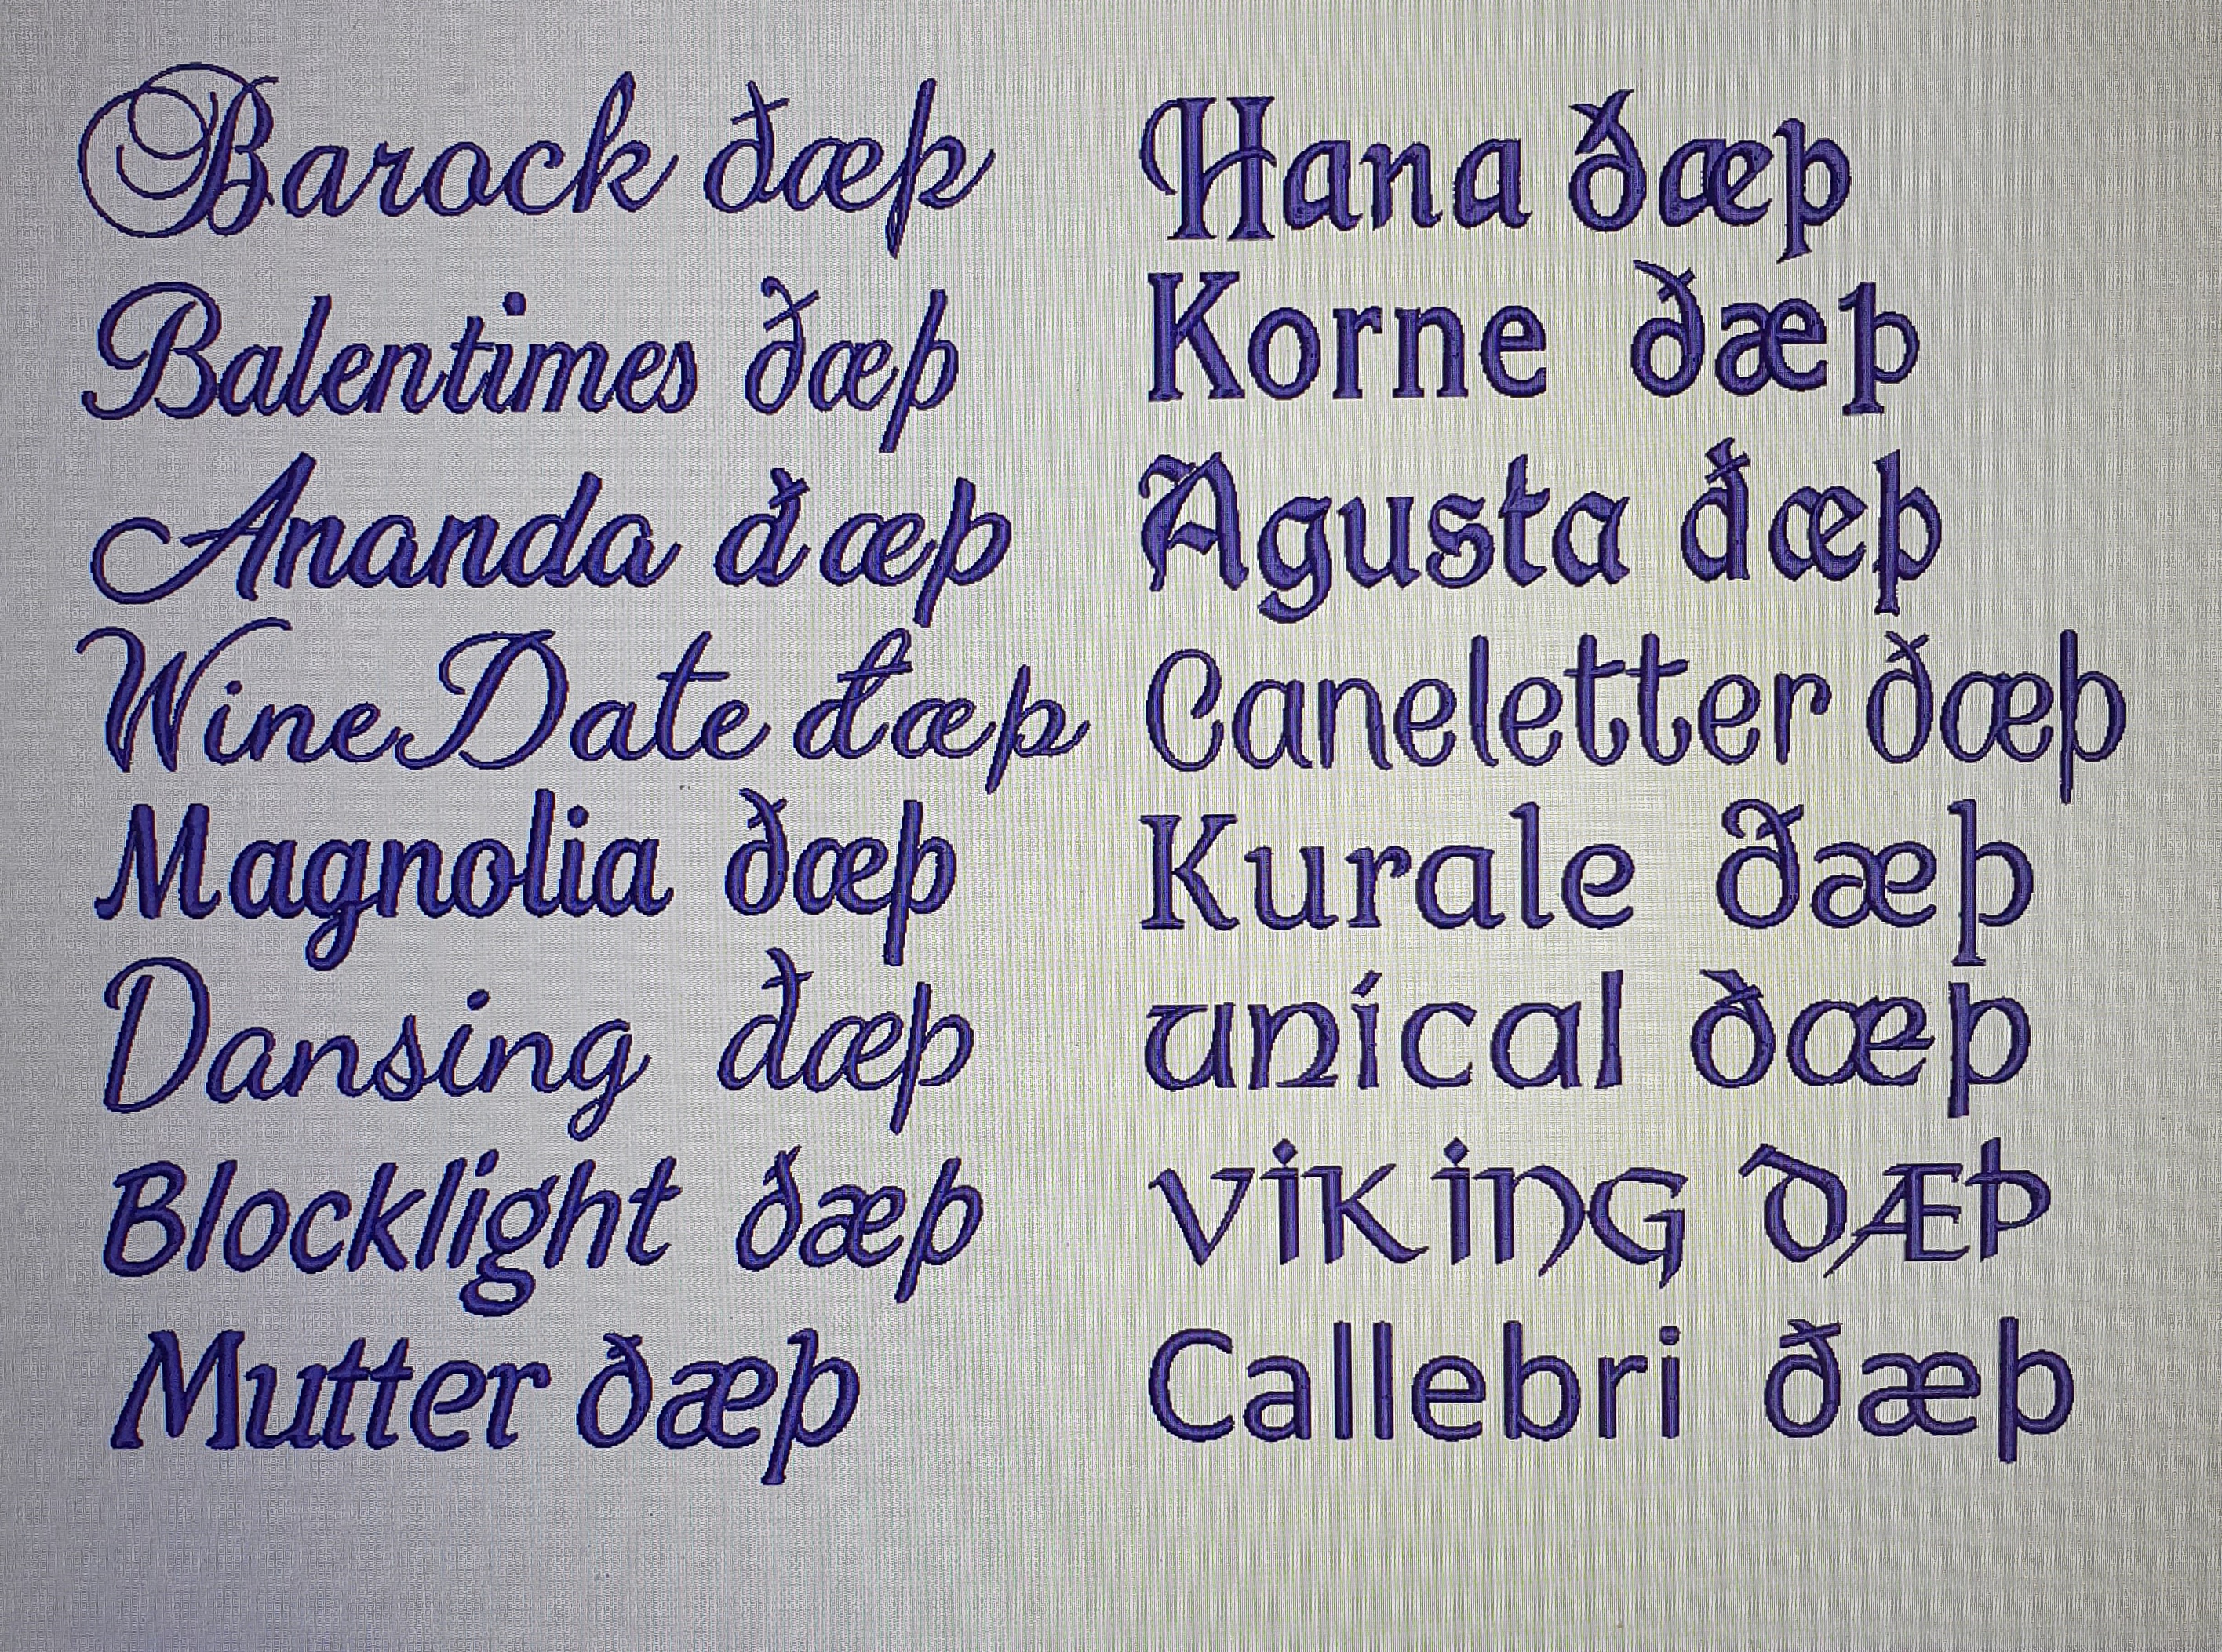 Barock ðæþ
Balentimes ðæþ
Ananda ðæþ
WineDate ðæþ
Magnolia ðæþ
Dansing ðæþ
Blocklight ðæþ
Mutter ðæþ
Hana ðæþ
Korne ðæþ
Agusta ðæþ
Caneletter ðæþ
Kurale ðæþ
unical ðæþ
viking ðÆÞ
Callebri ðæþ